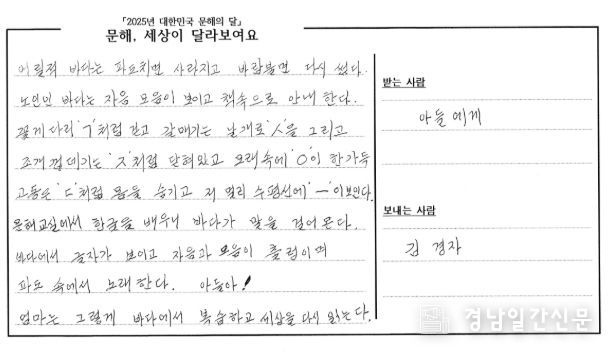 「2025년 대한민국 문해의 달」
문해, 세상이 달라보여요
어릴적 바다는 파도치면 사라지고 바람불면 다시 썼다.
노인인 바다는 자음 모음이 보이고 책속으로 안내 한다.
꽃게 다리 'ㄱ'처럼 걷고 갈매기는 날개로 'ㅅ'을 그리고
조개 껍데기는 'ㅈ'처럼 닫혀있고 모래속에 'ㅇ'이 한가득
고동은 'ㄷ'처럼 몸을 숨기고 저 멀리 수평선에 'ㅡ'이보인다.
문해교실에서 한글을 배우니 바다가 말을 걸어 온다.
바다에서 글자가 보이고 자음과 모음이 출렁이며
파도 속에서 노래한다. 아들아!
엄마는 그렇게 바다에서 복습하고 세상을 다시 읽는다.
받는 사람
아들에게
보내는 사람
김 경자
경남일간신문